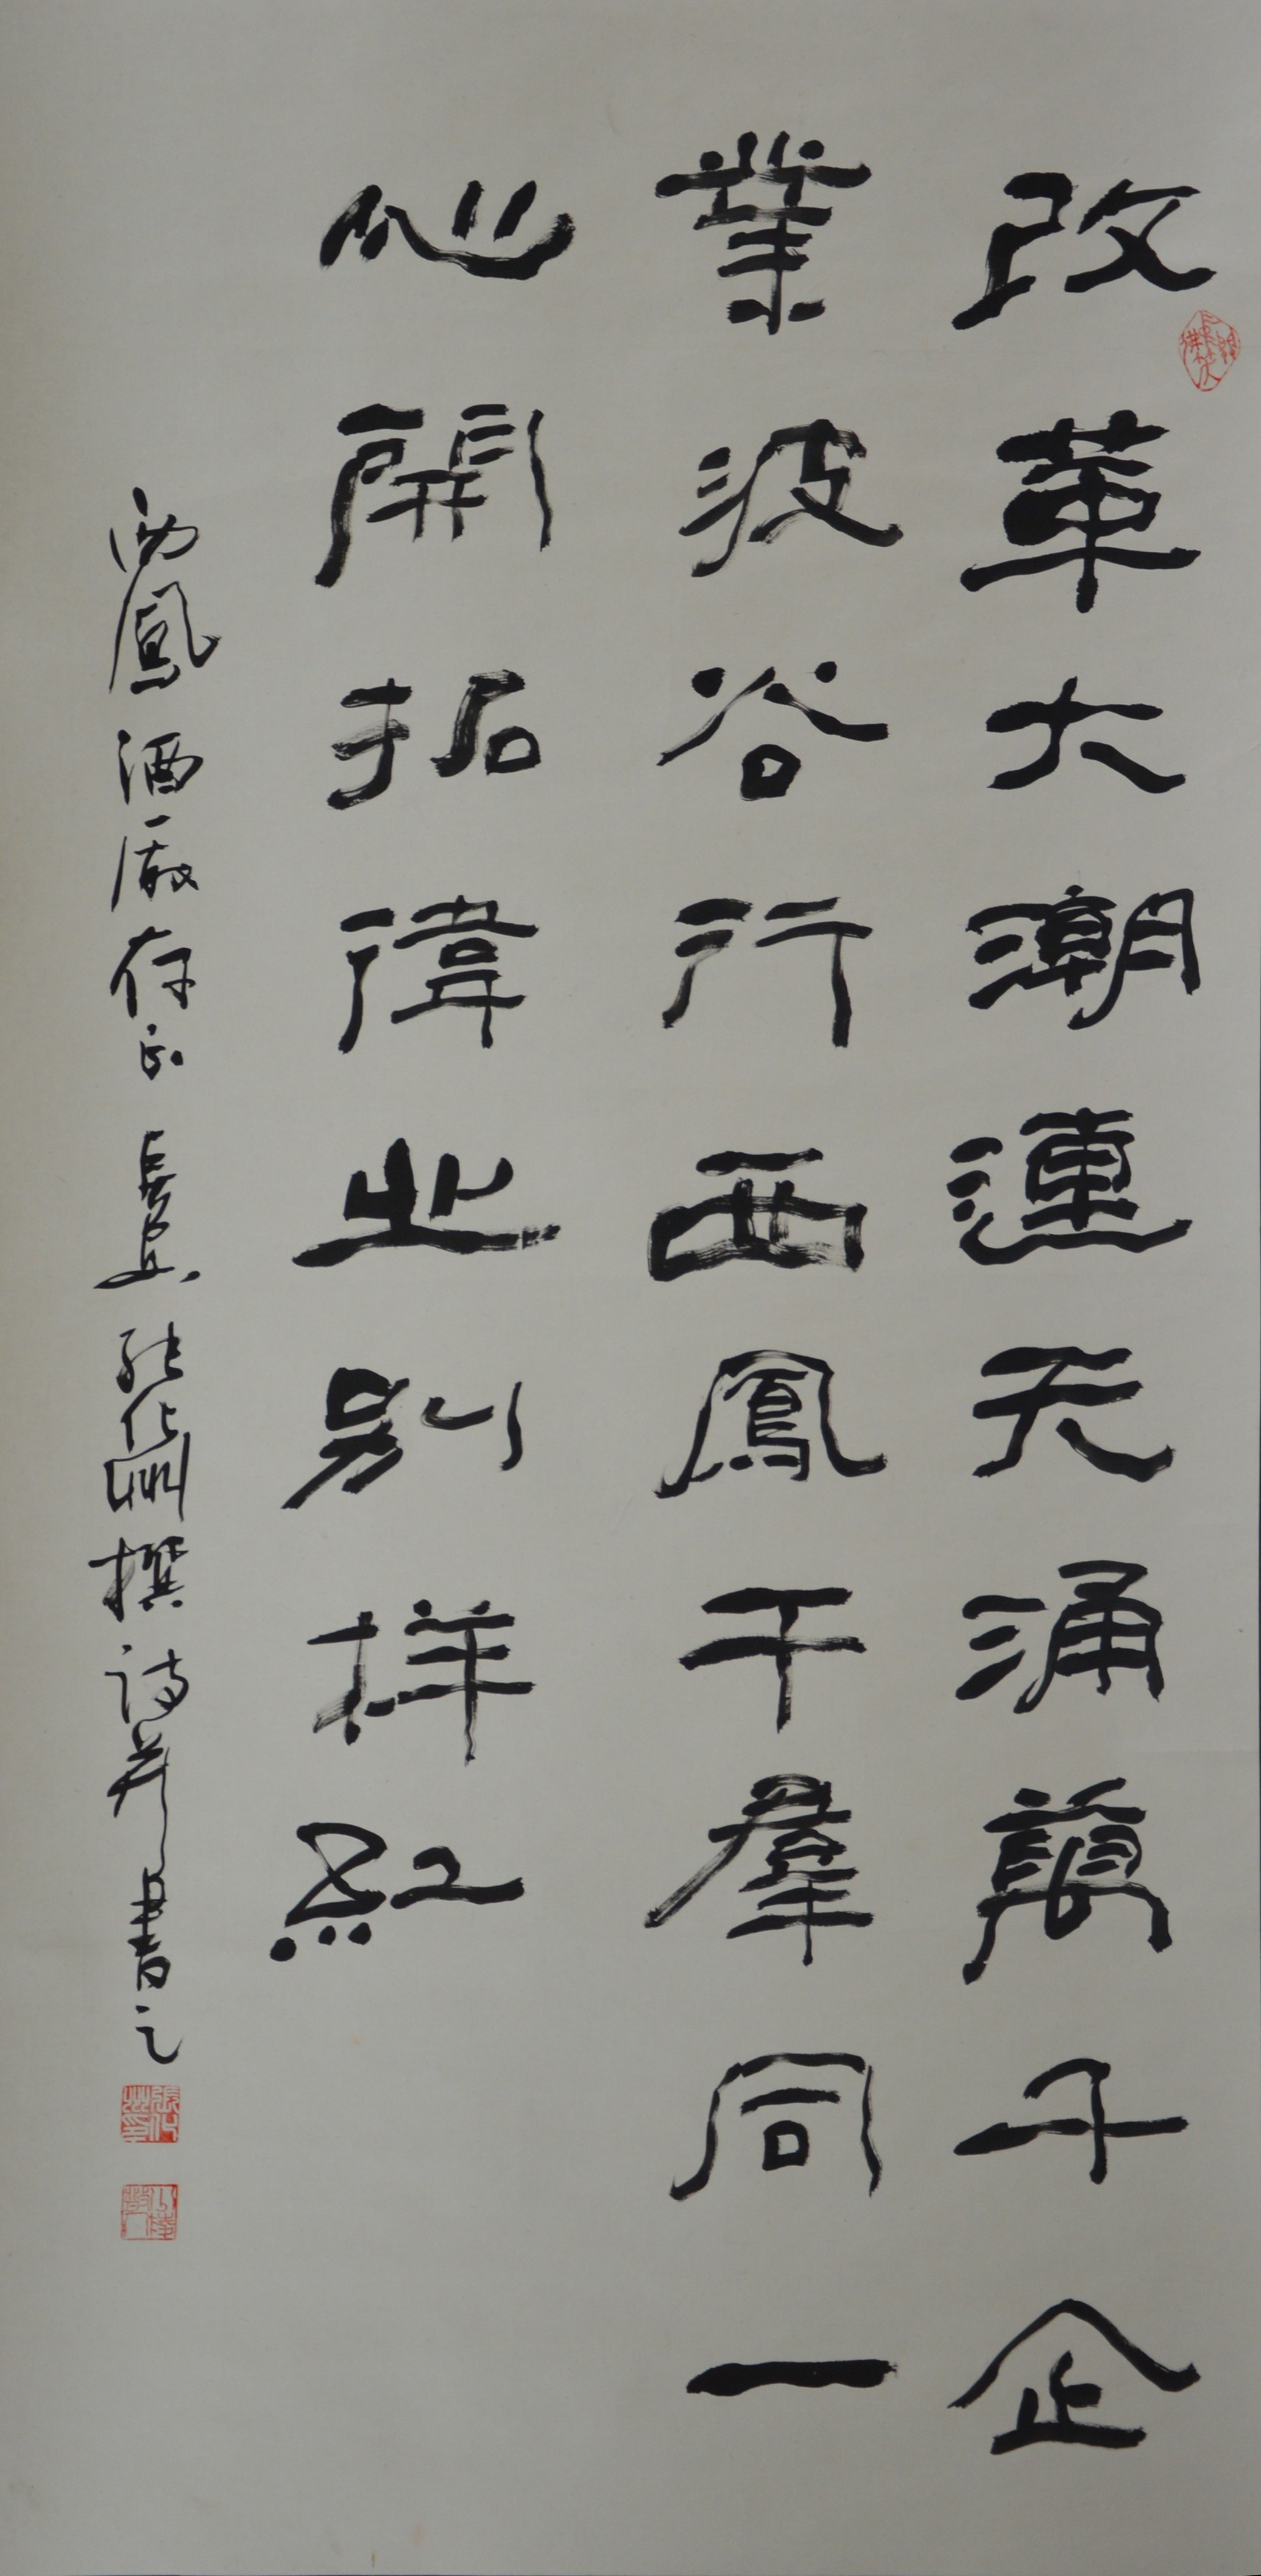 改革大潮連天涌萬千企
業波谷行西鳳干羣同一
心開拓偉业別樣紅
西鳳酒廠存正 長安 張化洲撰詩并書之